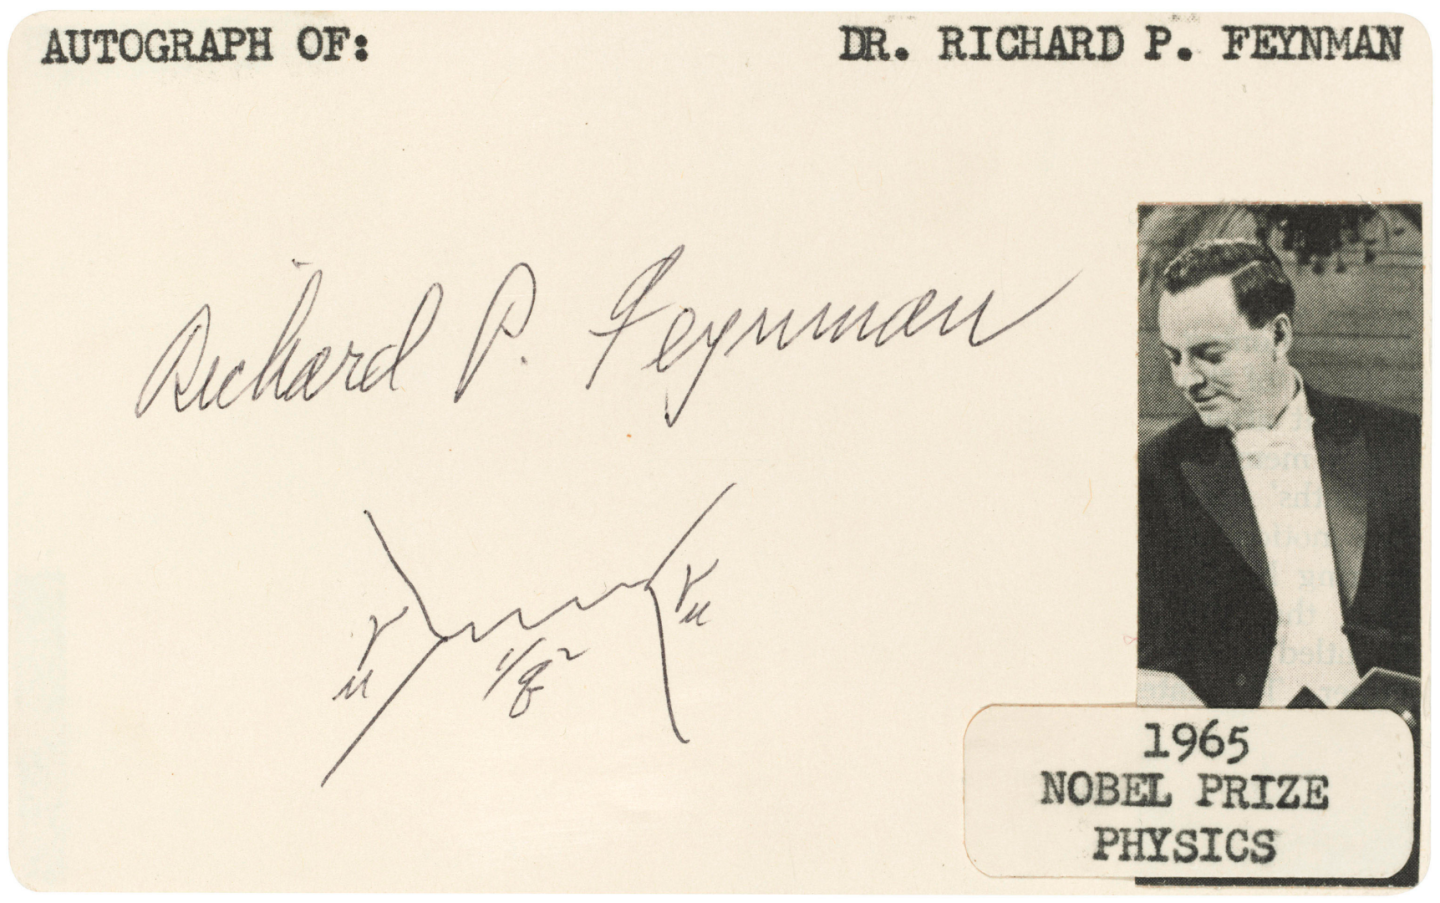 AUTOGRAPH OF: DR. RICHARD P. FEYNMAN
Richard P. Feynman
γμ
γμ
1/q²
1965
NOBEL PRIZE
PHYSICS